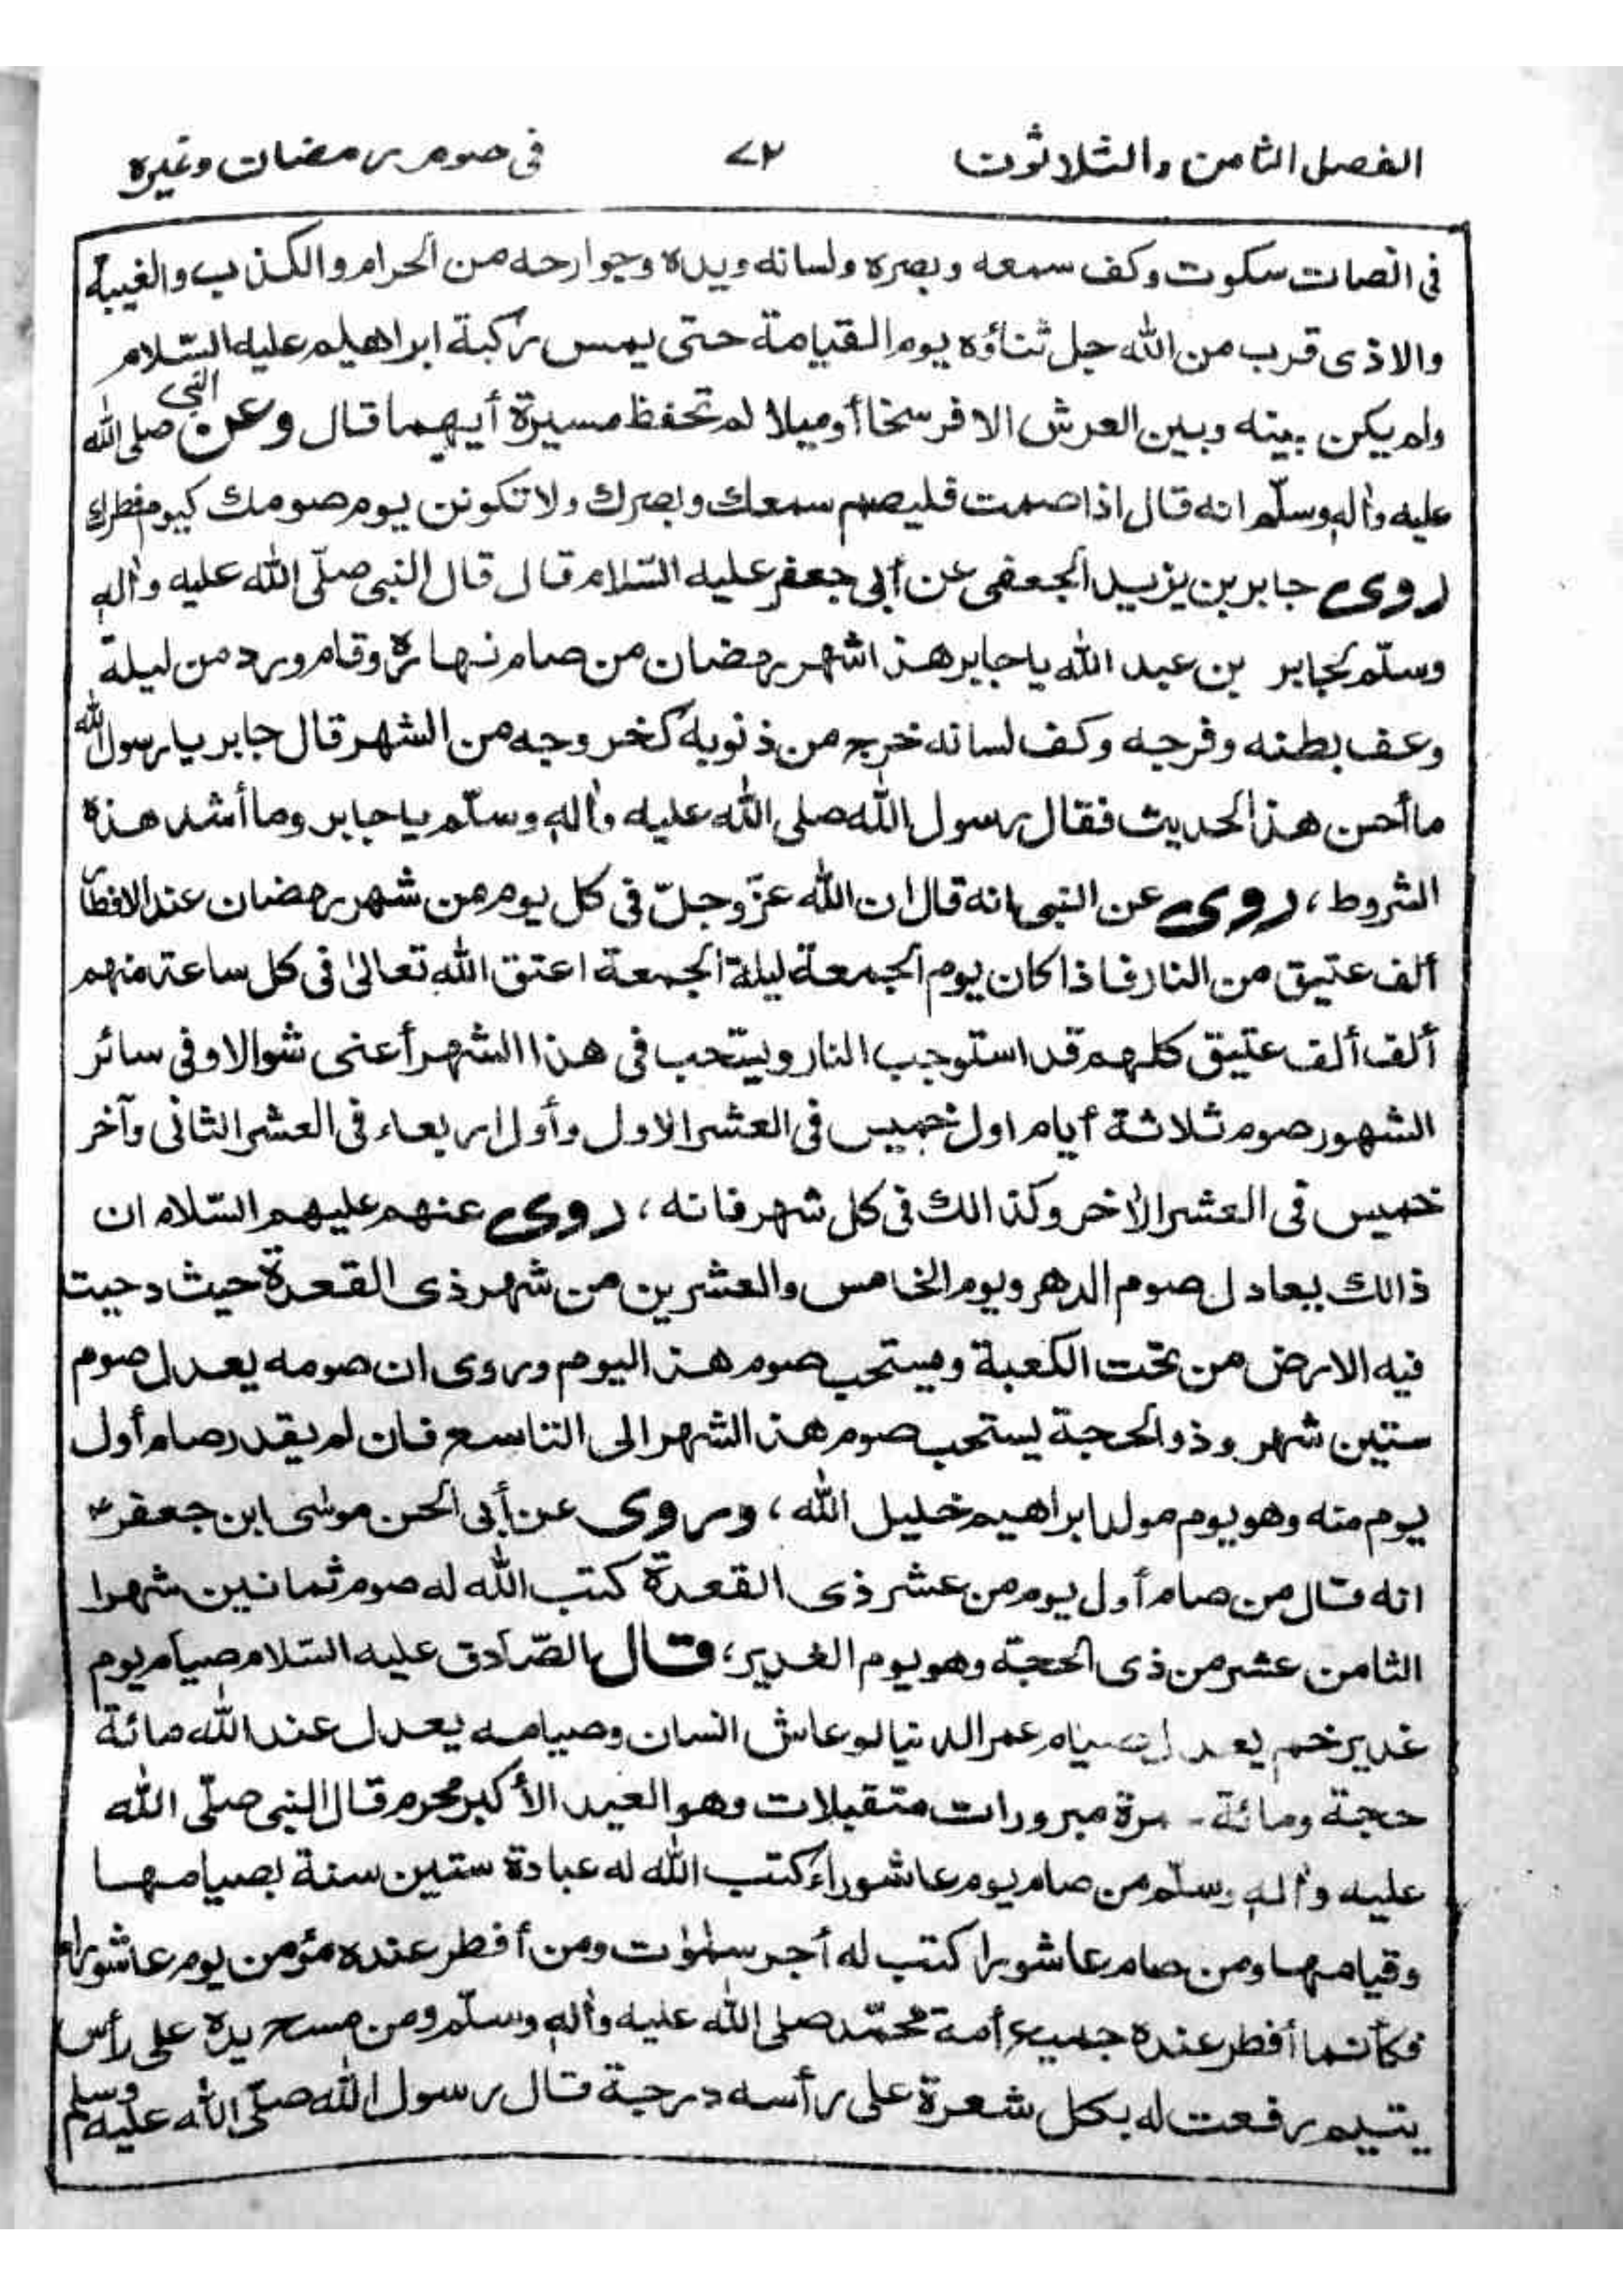 الفصل الثامن والثلاثون ٧٢ فى صوم رمضان وغيره
فى انصات سكوت وكف سمعه وبصره ولسانه ويده وجوارحه من الحرام والكذب والغيبة
والاذى قرب من الله جل ثناؤه يوم القيامة حتى يمس ركبة ابراهيم عليه السّلام
ولم يكن بينه وبين العرش الا فرسخا أو ميلا لم تحفظ مسيرة أيهما قال وعن النبى صلى الله
عليه واٰله وسلّم انه قال اذا صمت فليصم سمعك وبصرك ولا تكونن يوم صومك كيوم فطرك
روى جابر بن يزيد الجعفى عن أبى جعفر عليه السّلام قال قال النبى صلّى الله عليه واٰله
وسلّم لجابر بن عبد الله يا جابر هذا شهر رمضان من صام نهاره وقام ورد من ليلة
وعف بطنه وفرجه وكف لسانه خرج من ذنوبه كخروجه من الشهر قال جابر يا رسول الله
ما أحسن هذا الحديث فقال رسول الله صلى الله عليه واٰله وسلّم يا جابر وما أشد هذه
الشروط، روى عن النبى انه قال ان الله عزّ وجلّ فى كل يوم من شهر رمضان عند الافطار
ألف عتيق من النار فاذا كان يوم الجمعة ليلة الجمعة اعتق الله تعالىٰ فى كل ساعة منهم
ألف ألف عتيق كلهم قد استوجب النار ويستحب فى هذا الشهر أعنى شوالا وفى سائر
الشهور صوم ثلاثة أيام اول خميس فى العشر الاول وأول اربعاء فى العشر الثانى وآخر
خميس فى العشر الأخر وكذالك فى كل شهر فانه، روى عنهم عليهم السّلام ان
ذالك يعادل صوم الدهر ويوم الخامس والعشرين من شهر ذى القعدة حيث دحيت
فيه الارض من تحت الكعبة ويستحب صوم هذا اليوم وروى ان صومه يعدل صوم
ستين شهر وذو الحجة يستحب صوم هذا الشهر الى التاسع فان لم يقدر صام أول
يوم منه وهو يوم مولد ابراهيم خليل الله، وروى عن أبى الحسن موسٰى ابن جعفر ع
انه قال من صام أول يوم من عشر ذى القعدة كتب الله له صوم ثمانين شهرا
الثامن عشر من ذى الحجة وهو يوم الغدير، قال الصّادق عليه السّلام صيام يوم
غدير خم يعدل صيام عمر الدنيا لو عاش انسان وصيامه يعدل عند الله مائة
حجة ومائة - مرة مبرورات متقبلات وهو العيد الأكبر محرم قال النبى صلّى الله
عليه واٰله وسلّم من صام يوم عاشوراء كتب الله له عبادة ستين سنة بصيامها
وقيامها ومن صام عاشورا كتب له أجر سمٰوٰت ومن أفطر عنده مؤمن يوم عاشوراء
فكأنما أفطر عنده جميع أمة محمّد صلى الله عليه واٰله وسلّم ومن مسح يده على رأس
يتيم رفعت له بكل شعرة على رأسه درجة قال رسول الله صلّى الله عليه وسلم